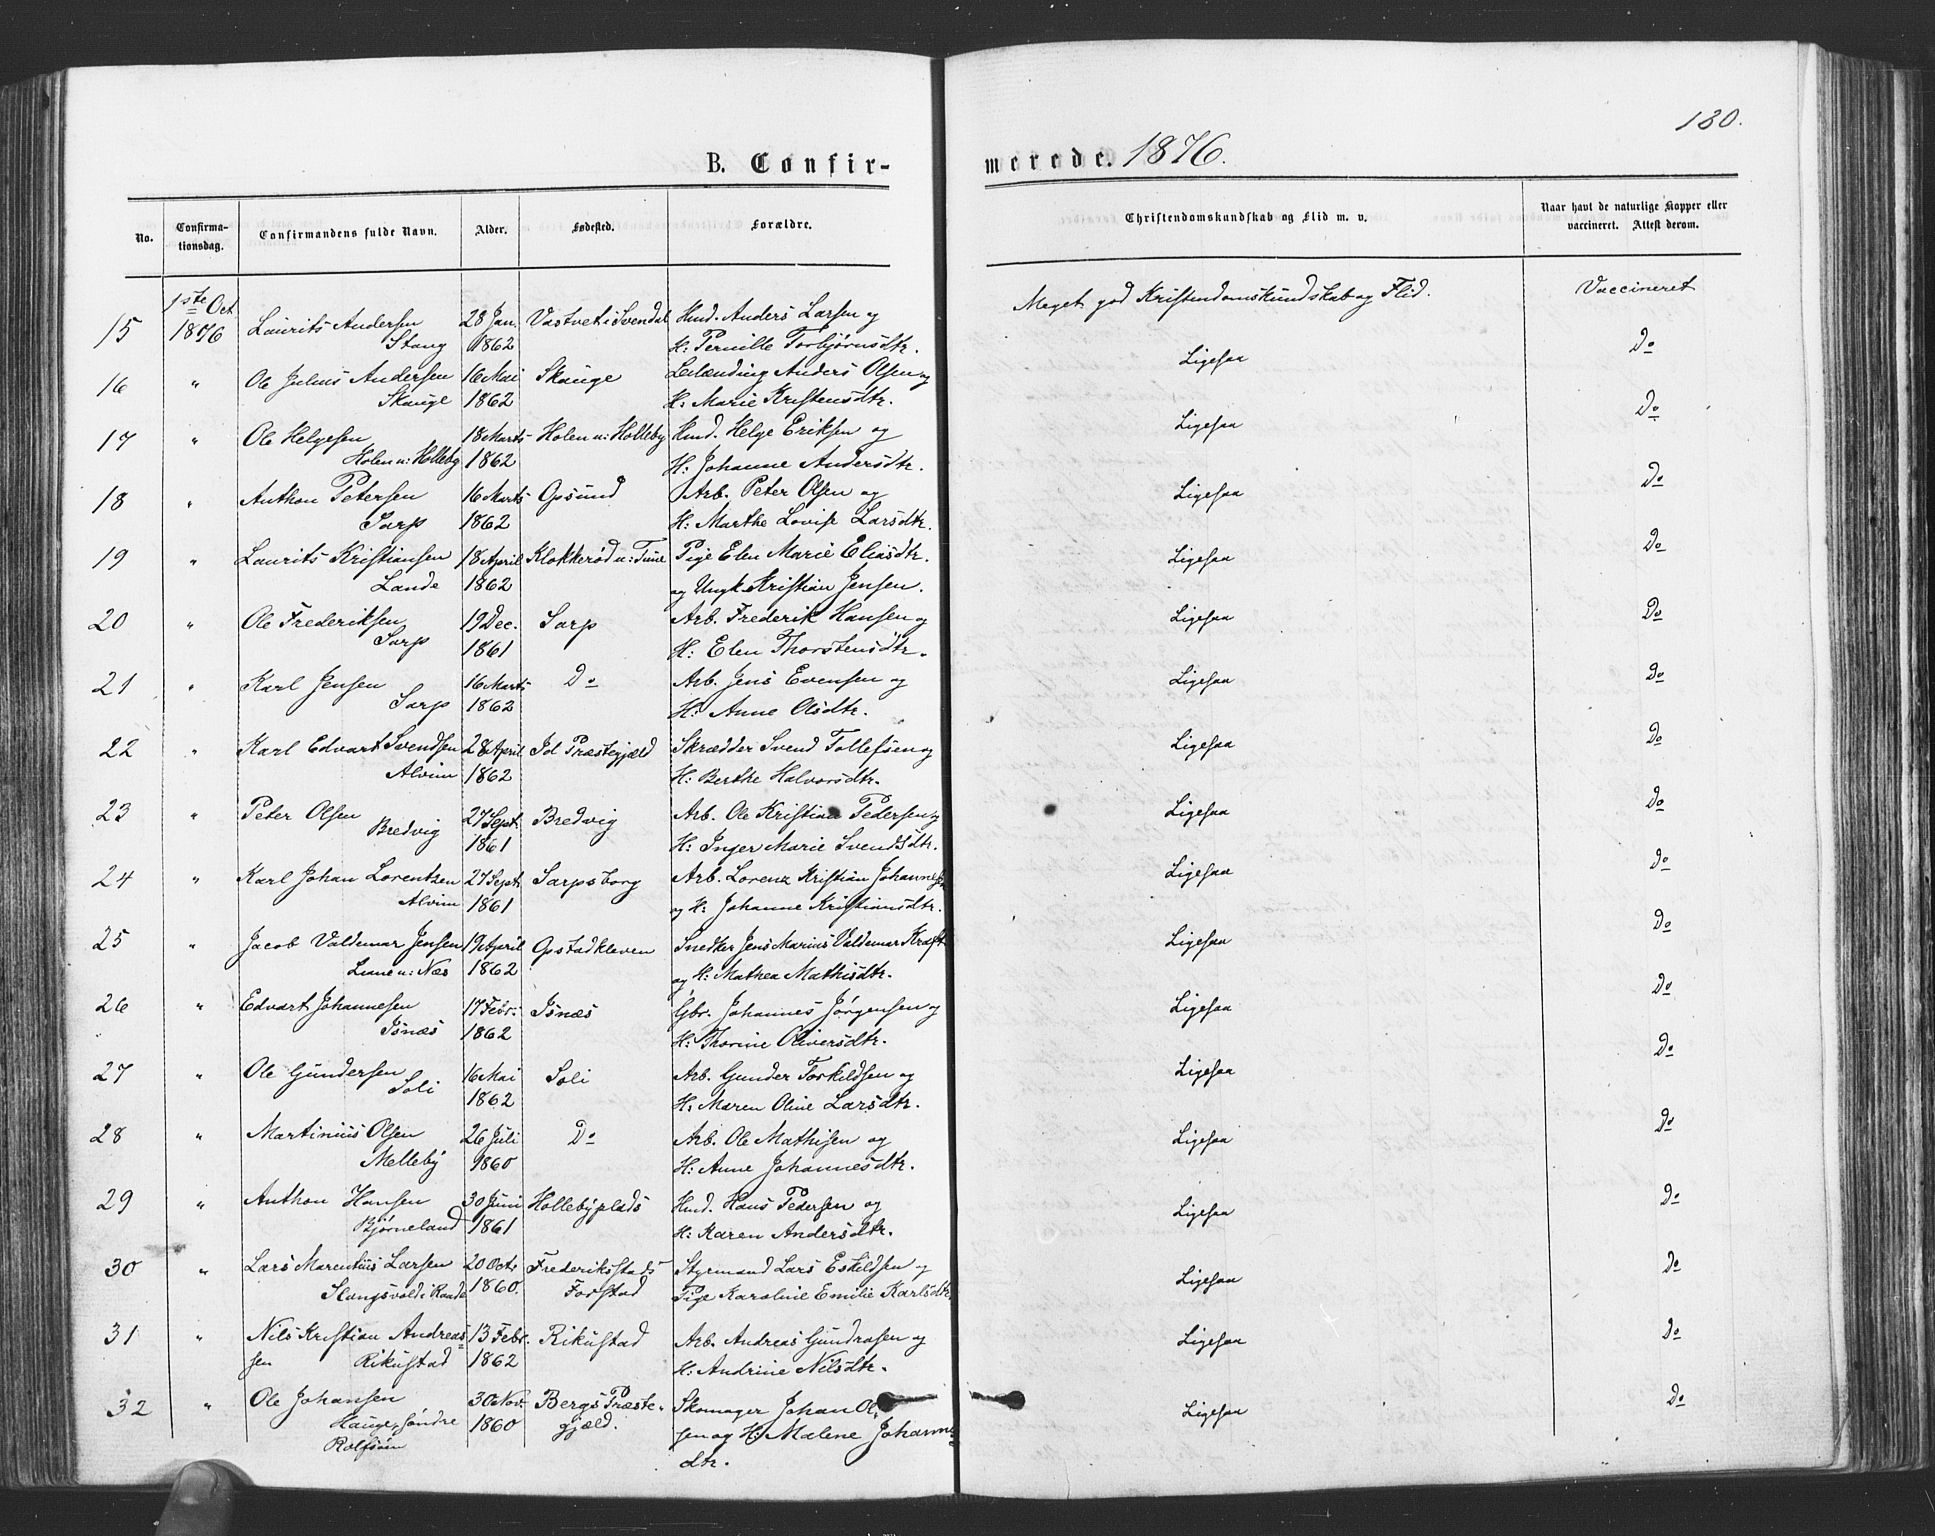 180.
B. Confirmerede. 1876.
No. Confirmationsdag. Confirmandens fulde Navn. Alder. Fødested. Forældre. Christendomskundskab og Flid m. v. Naar havt de naturlige Kopper eller vaccineret. Attest derom.
1ste Oct Meget god Kristendomskundskab og Flid. Vaccineret
15 1876 Laurits Andersen 28 Jan. Vastvet i Svendal Hmd. Anders Larsen og
Stang 1862 H: Pernille Torbjørnsdtr. Ligesaa Do
16 " Ole Julius Andersen 16 Mai Skauge Leilænding Anders Olsen og
Skauge 1862 H: Marie Kristensdtr. Ligesaa Do
17 " Ole Helgesen 18 Marts Holen u: Holleby Hmd. Helge Eriksen og
Holen u: Holleby 1862 H: Johanne Andersdtr. Ligesaa Do
18 " Anthon Petersen 16 Marts Opsund Arb. Peter Olsen og
Sarp 1862 H: Marthe Lovise Larsdtr. Ligesaa Do
19 " Laurits Kristiansen 18 April Klokkerød u: Tune Pige Elen Marie Eliasdtr.
Lande 1862 og Ungk. Kristian Jensen. Ligesaa Do
20 " Ole Frederiksen 19 Dec. Sarp Arb. Frederik Hansen og
Sarp 1861 H: Elen Thorstensdtr. Ligesaa Do
21 " Karl Jensen 16 Marts Do Arb. Jens Evensen og
Sarp 1862 H: Anne Olsdtr. Ligesaa Do
22 " Karl Edvart Svendsen 28 April Id Præstegjæld Skrædder Svend Tollefsen og
Alvim 1862 H: Berthe Halvorsdtr. Ligesaa Do
23 " Peter Olsen 27 Sept. Bredvig Arb. Ole Kristian Pedersen og
Bredvig 1861 H: Inger Marie Svendsdtr. Ligesaa Do
24 " Karl Johan Lorentzen 27 Sept. Sarpsborg Arb. Lorenz Kristian Johannes
Alvim 1861 og H: Johanne Kristiansdtr. Ligesaa Do
25 " Jacob Valdemar Jensen 19 April Opstadkleven Snedker Jens Marius Valdemar Kraft
Liane u: Næs 1862 og H: Mathea Mathisdtr. Ligesaa Do
26 " Edvart Johannesen 17 Febr. Isnæs Gbr. Johannes Jørgensen og
Isnæs 1862 H: Thorine Oliversdtr. Ligesaa Do
27 " Ole Gundersen 16 Mai Soli Arb. Gunder Torkildsen og
Soli 1862 H: Maren Oline Larsdtr. Ligesaa Do
28 " Martinius Olsen 26 Juli Do Arb. Ole Mathisen og
Melleby 1860 H: Anne Johannesdtr. Ligesaa Do
29 " Anthon Hansen 30 Juni Hollebyplads Hmd. Hans Pedersen og
Bjørneland 1861 H: Karen Andersdtr. Ligesaa Do
30 " Lars Marentius Larsen 20 Octr Frederiksstads Styrmand Lars Eskildsen og
Slangsvold i Raade 1860. Forstad Pige Karoline Emilie Karlsdtr. Ligesaa Do
31 " Nils Kristian Andreas= 13 Febr. Rikustad Arb. Andreas Gundrosen og
sen Rikustad 1862 H: Andrine Nilsdtr. Ligesaa Do
32 " Ole Johansen 30 Nov. Bergs Præste= Skomager Johan Ol=
Hauge, søndre 1860 gjæld. sen og H: Malene Johannes
Rolfsøen dtr. Ligesaa Do